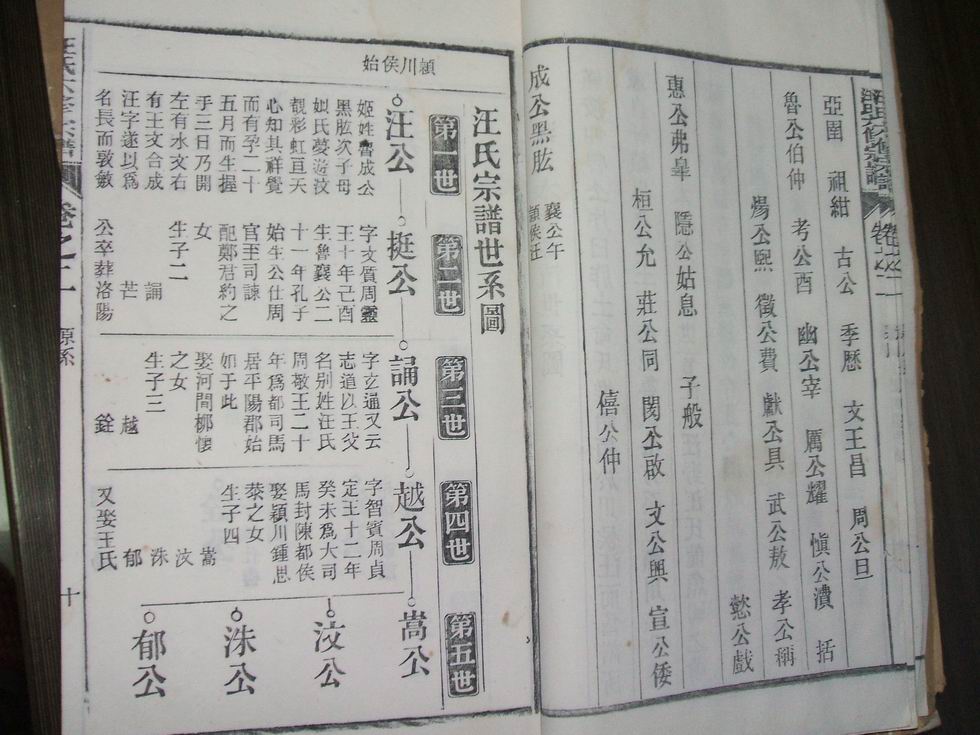 亞圉 祖紺 古公 季歷 文王昌 周公旦
魯公伯仲 考公酉 幽公宰 厲公耀 慎公濆 括
煬公熙 徵公費 獻公具 武公敖 孝公稱
懿公戲
惠公弗皐 隱公姑息 子般
桓公允 莊公同 閔公啟 文公興 宣公倭
僖公仲
成公黑肱
襄公午
潁侯汪
汪氏宗譜世系圖
第一世
第二世
第三世
第四世
第五世
潁川侯始
汪公
姬姓魯成公
黑肱次子母
姒氏夢遊汶
覩彩虹亘天
心知其祥覺
而有孕二十
五月而生握
手三日乃開
左有水文右
有王文合成
汪字遂以爲
名長而敦敏
挺公
字文質周靈
王十年己酉
生魯襄公二
十一年孔子
始生公仕周
官至司諫
配鄭君約之
女
生子二
誦
芒
公卒葬洛陽
誦公
字玄通又云
志道以王父
名别姓汪氏
周敬王二十
年爲都司馬
居平陽郡始
如于此
娶河間柳懷
之女
生子三
越
銓
越公
字智賓周貞
定王十二年
癸未爲大司
馬封陳都侯
娶潁川鍾思
棻之女
生子四
嵩
汶
洙
郁
又娶王氏
嵩公
汶公
洙公
郁公
汪氏六修宗譜
卷之二
源系
十